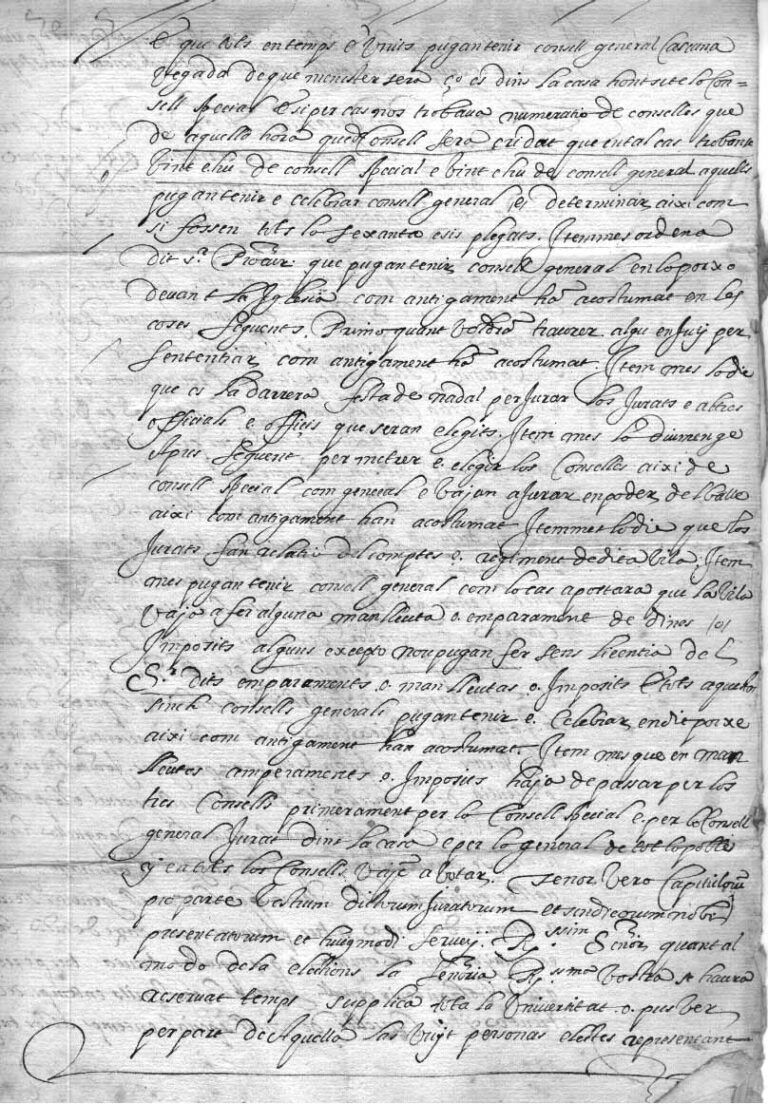 E que tots en temps e Units pugan tenir consell general Cascuna
Vegada de que menester sera ço es dins la casa hont se te lo Con=
sell Special E si per cas nos trobava numeratio de conselles que
de aquella hora quel Consell sera cridat que en tal cas trobanse
Vint e hu de consell special e Vint e hu de consell general aquells
pugan tenir e celebrar consell general e determinar aixi com
si fossen tots lo sexanta e sis plegats. Item mes ordena
dit Sr. Procur. que pugan tenir consell general en lo porxo
devant la Iglesia com antigament ha acostumat en les
coses seguents. Primo quant Voldra traurer algu en Juy per
sententiar com antigament ha acostumat. Item mes lo die
que es la darrera festa de nadal per Jurar los Jurats e altres
officials e officis que seran elegits. Item mes lo diumenge
apres seguent per metrer e elegir los Consellés aixi de
consell special com general e vajan a Jurar en poder del balle
aixi com antigament han acostumat Item mes lo die que los
Jurats fan relatio dels comptes o regiment de dita Vila. Item
mes pugan tenir consell general com lo cas aportara que la Vila
Vaja a fer alguna manlleuta o emparament de dines (o)
Imposits alguns excepto nou pugan fer sens licentia del
Sr. dits emparaments o manlleutas o Imposits E tots aquestos
sinch consells generals pugan tenir e Celebrar en dit porxe
aixi com antigament han acostumat. Item mes que en man
lleutes amperaments o Imposits haja de passar per los
tres Consells primerament per lo Consell special e per lo Consell
general Jurat dins la casa e per lo general de tot lo poble
y ea tots los Consells Vaje a botar. Tenor Vero Capitulorum
pro parte Vestrum dictorum Juratorum et sindicorum nobis
presentatorum et huiusmodi seriey. Rssim Señor quant al
modo de la elections la Señoria Rssma Vostra se haura
reservat temps supplica tota la Universitat o pus ver
per part de Aquella las Vuyt personas electes representant